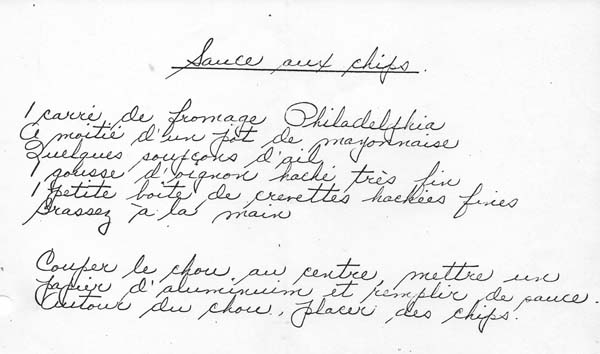 Sauce aux chips.
1 carré de fromage Philadelphia
La moitié d'un pot de mayonnaise
Quelques soupçons d'ail
1 gousse d'oignon haché très fin
1 petite boîte de crevettes hachées fines
Brassez à la main
Couper le chou au centre, mettre un
papier d'aluminuim et remplir de sauce.
Autour du chou, placer des chips.